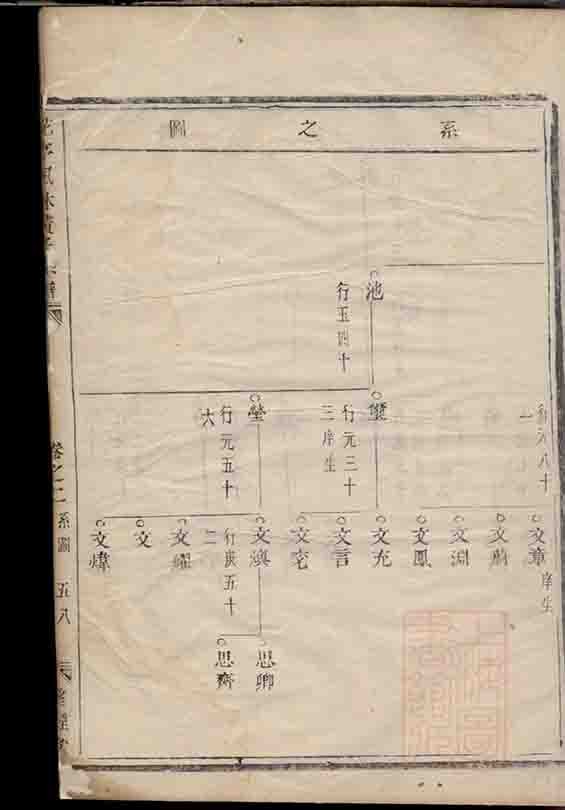 系之圖
池
行玉四十
行元八十
一
璽
行元三十
三庠生
瑩
行元五十
六
文章
庠生
文蔚
文淵
文鳳
文充
文言
文宅
文澳
行庚五十
二
文耀
文
文煒
思卿
思齊
卷之二 系圖 五八